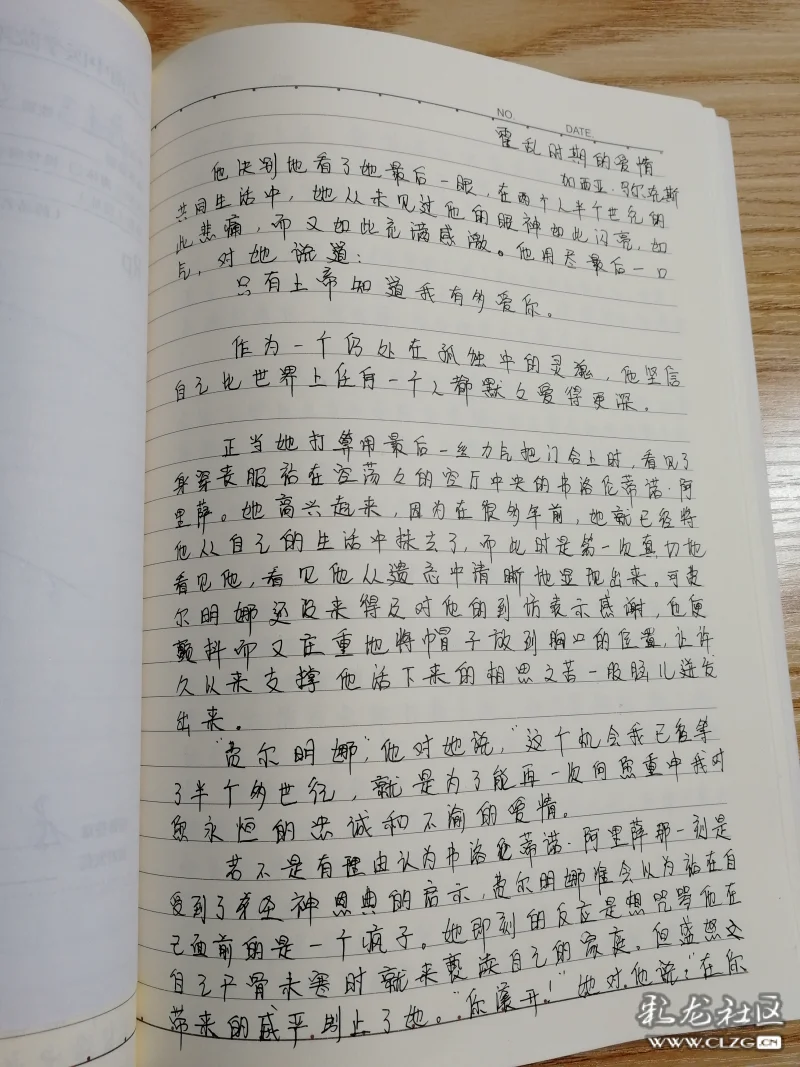 NO.
DATE.
霍乱时期的爱情
加西亚·马尔克斯
他诀别地看了她最后一眼，在两个人半个世纪的
共同生活中，她从未见过他的眼神如此闪亮，如
此悲痛，而又如此充满感激。他用尽最后一口
气，对她说道：
只有上帝知道我有多爱你。
作为一个仍处在孤独中的灵魂，他坚信
自己比世界上任何一个人都默々爱得更深。
正当她打算用最后一丝力气把门合上时，看见了
身穿丧服站在空荡々的客厅中央的弗洛伦蒂诺·阿
里萨。她高兴起来，因为在很多年前，她就已经将
他从自己的生活中抹去了，而此时是第一次真切地
看见他，看见他从遗忘中清晰地显现出来。可费
尔明娜还没来得及对他的到访表示感谢，他便
颤抖而又庄重地将帽子放到胸口的位置，让许
久以来支撑他活下来的相思之苦一股脑儿迸发
出来。
“费尔明娜，”他对她说，“这个机会我已经等
了半个多世纪，就是为了能再一次向您重申我对
您永恒的忠诚和不渝的爱情。
若不是有理由认为弗洛伦蒂诺·阿里萨那一刻是
受到了圣神恩典的启示，费尔明娜准会以为站在自
己面前的是一个疯子。她即刻的反应是想咒骂他在
自己尸骨未寒时就来亵渎自己的家庭。但盛怒之
带来的威严制止了她。“你滚开！”她对他说，“在你
乳龙社区
WWW.CLZG.CN